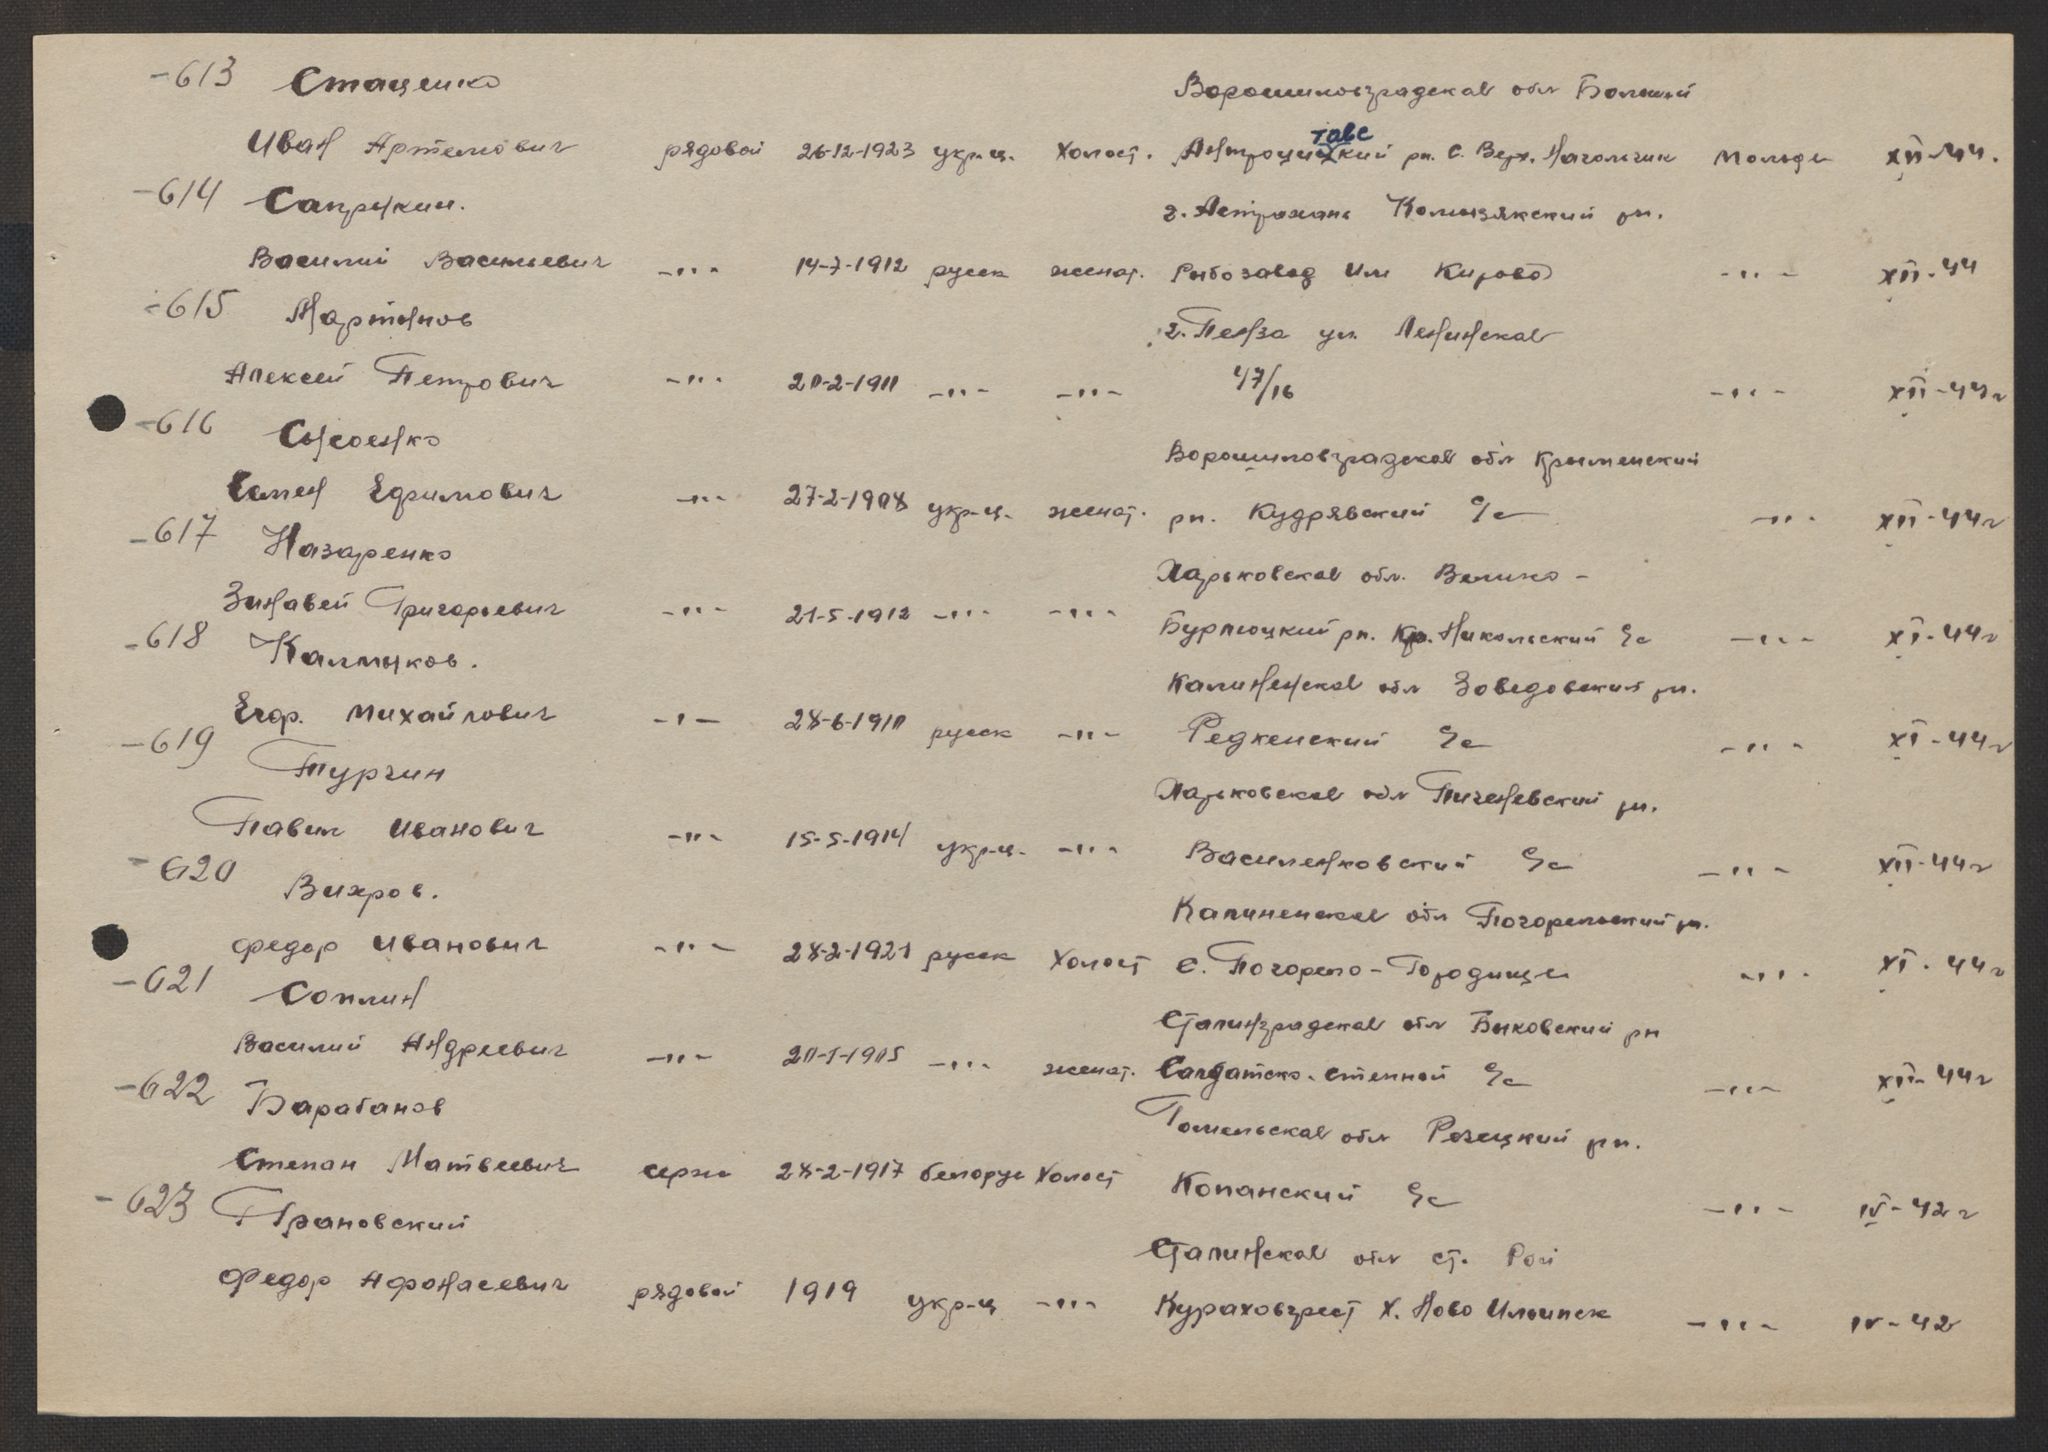 -613 Стаценко Ворошиловградская обл Больший
Иван Артемович рядовой 26-12-1923 укр-ц. Холост. Антроцитавский рн. с. Верх. Нагольчик Мольде XII-44.
-614 Сапрыкин. г. Астрахань Камызякский рн.
Василий Васильевич -"- 14-7-1912 русск женат. Рыбозавод Им Кирова -"- XII-44
-615 Мартынов г. Пенза ул. Ленинская
Алексей Петрович -"- 20-2-1911 -"- -"- 47/16 -"- XII-44г
-616 Сысоенко Ворошиловградская обл Крыменский
Семен Ефимович -"- 27-2-1908 укр-ц. женат. рн. Кудрявский с/с -"- XII-44г
-617 Назаренко Харьковская обл. Велико-
Зинавей Григорьевич -"- 21-5-1912 -"- -"- Бурлюцкий рн. Кр. Никольский с/с -"- XI-44г
-618 Калмыков. Калиненская обл Зоведовский рн.
Егор. Михайлович -"- 28-6-1910 русск -"- Редкенский с/с -"- XI-44г
-619 Турчин Харьковская обл Пиченевский рн.
Павел Иванович -"- 15-5-1914 укр-ц. -"- Василенковский с/с -"- XII-44г
-620 Вихров. Калиненская обл Погорельский рн.
Федор Иванович -"- 28-2-1921 русск Холост с. Погорело-Городище -"- XI-44г
-621 Соплин Сталинградская обл Быковский рн
Василий Андреевич -"- 20-1-1905 -"- женат. Салдатско-степной с/с -"- XII-44г
-622 Барабанов Гомельская обл Речецкий рн.
Степан Матвеевич серж 28-2-1917 белорус Холост Копанский с/с -"- IV-42г
-623 Грановский Сталинская обл ст. Рой
Федор Афонасевич рядовой 1919 укр-ц -"- Кураховгрест Х. Ново Ильинск -"- IV-42